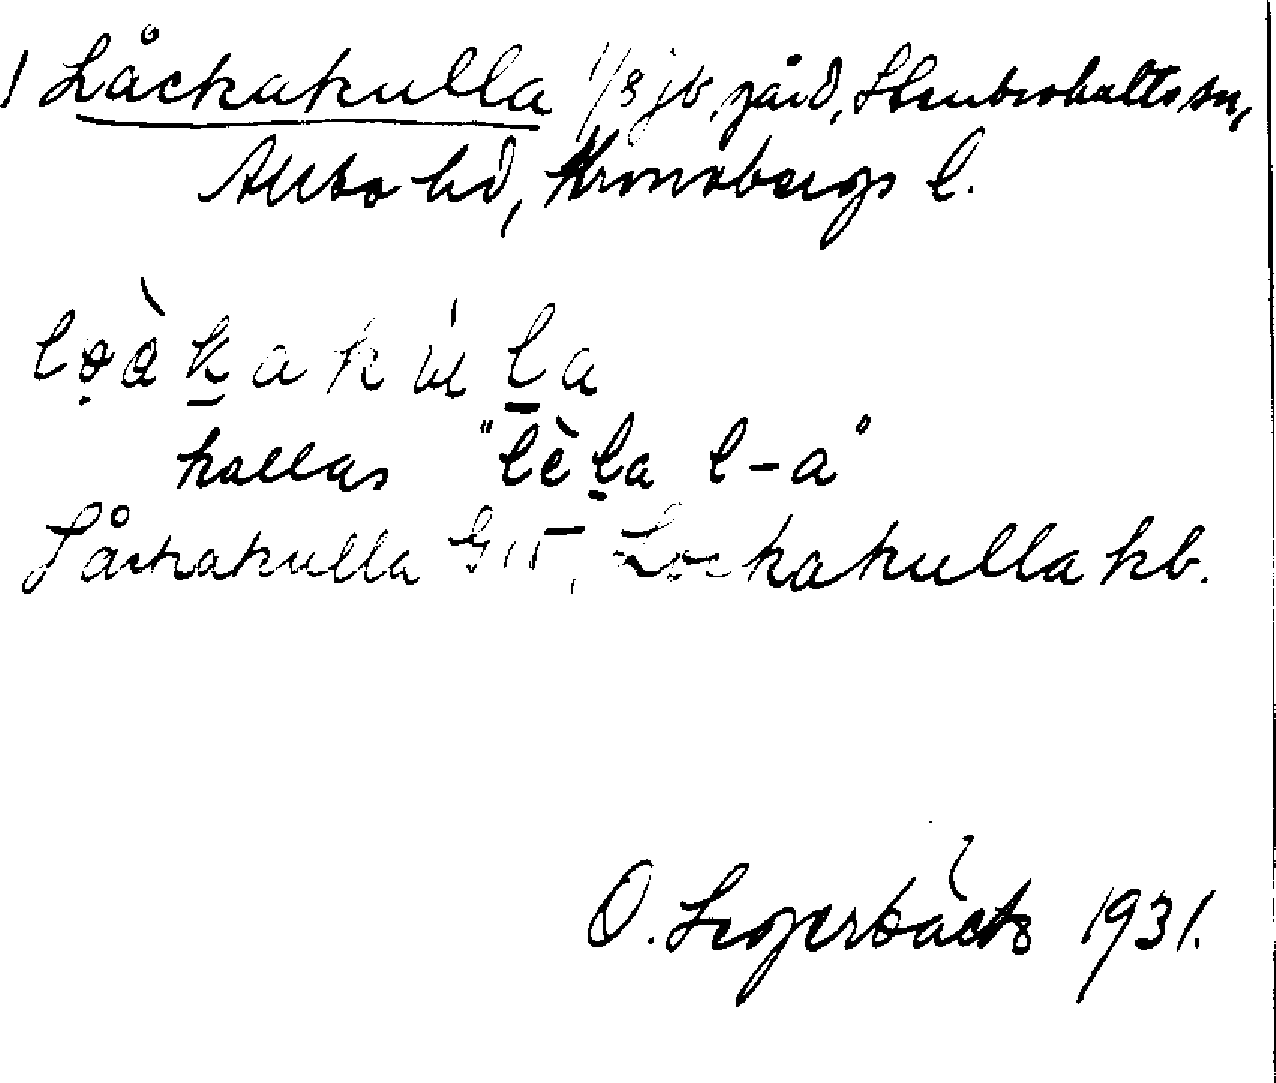 1 Låckakulla 1/8 jb. gård, Stenbrohults sn,
Allbo hd, Kronobergs l.
lo̤àk̲akúl̲a
kallas "lèl̲a l-a"
Låckakulla GK, Lockakulla kb.
O. Segerbäck 1931.